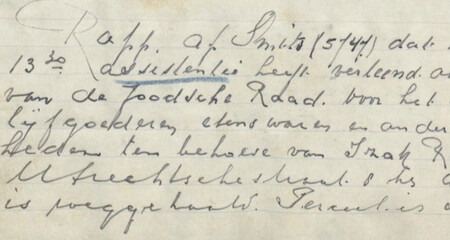 Rapp. af Smits (5/47) dat
13 30 assistentie heeft verleend a
van de Joodsche Raad. voor het
lijfgoederen etenswaren en ander
heden ten behoeve van Izak R
Utrechtschestraat 8 hs
is weggehaald. Perceel is